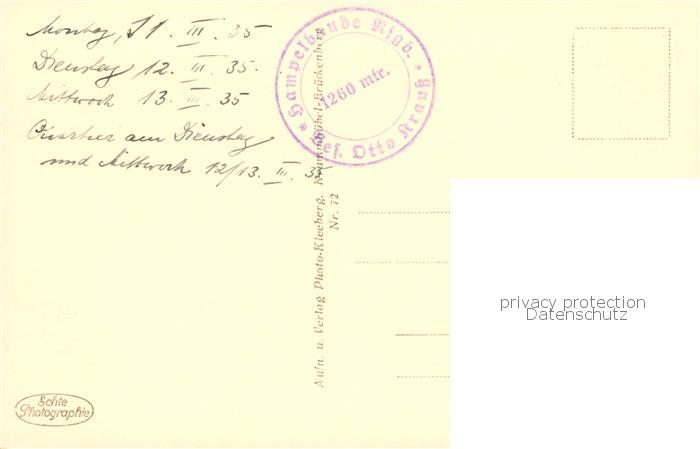 Montag, 11. III. 35
Dienstag 12. III. 35.
Mittwoch 13. III. 35
Quartier am Dienstag
und Mittwoch 12/13. III. 35
* Hampelbaude Rsgb. * Bes. Otto Krauß
1260 mtr.
Aufn. u. Verlag Photo-Kleeberg, Krummhübel-Brückenberg
Nr. 72
privacy protection
Datenschutz
Echte
Photographie